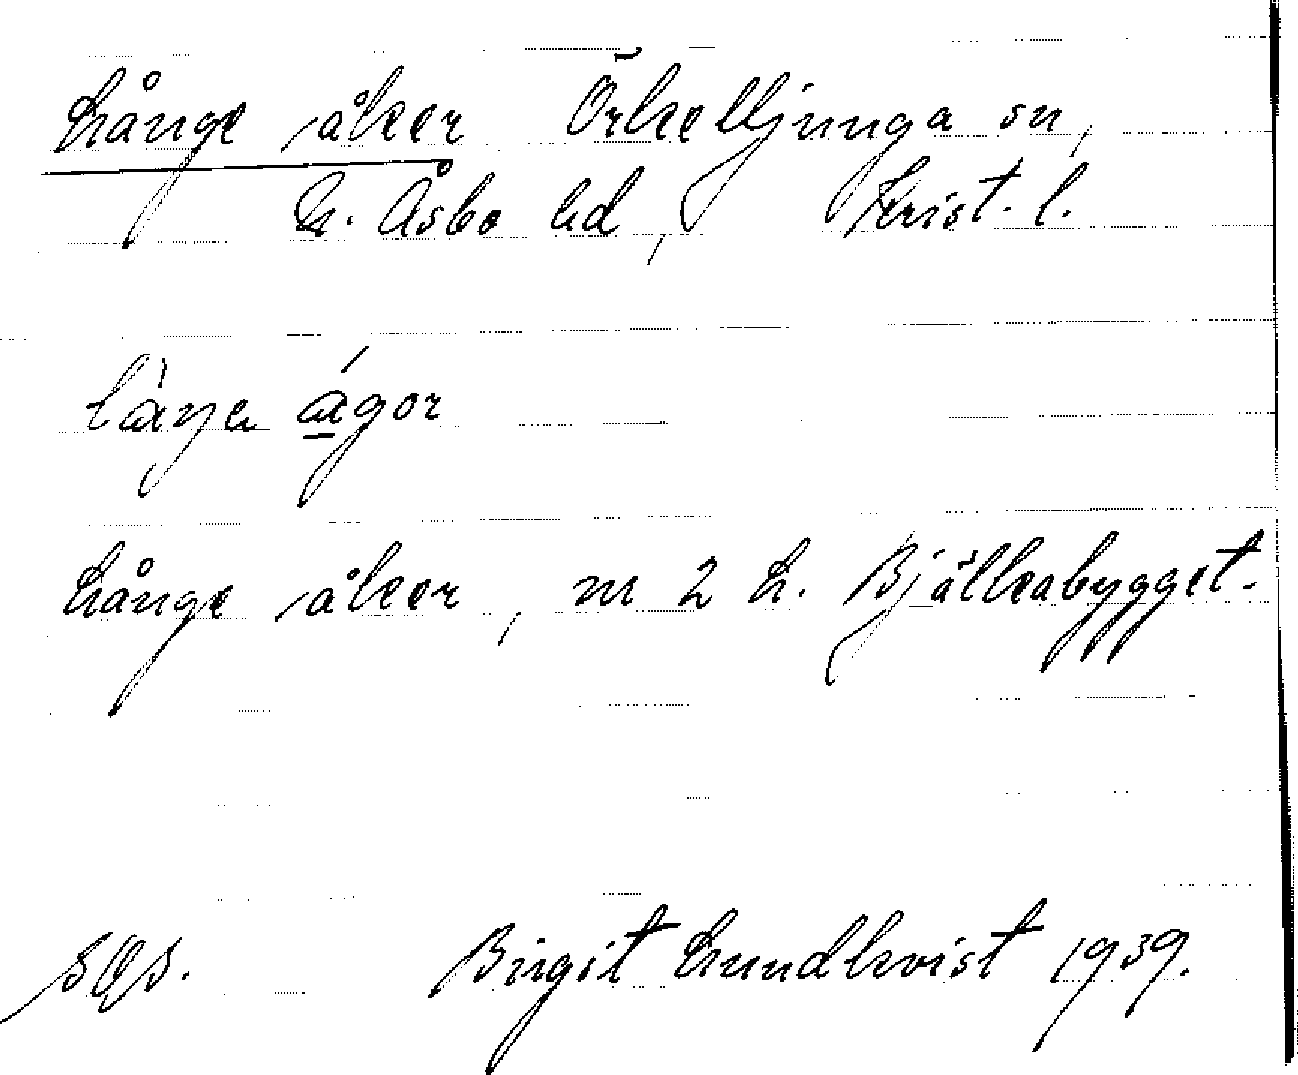 Långe åker Örkelljunga sn,
N. Åsbo hd, Krist. l.
ágor
Långe åker, nr 2 L. Bjälkabygget.
Birgit Lundkvist 1939.